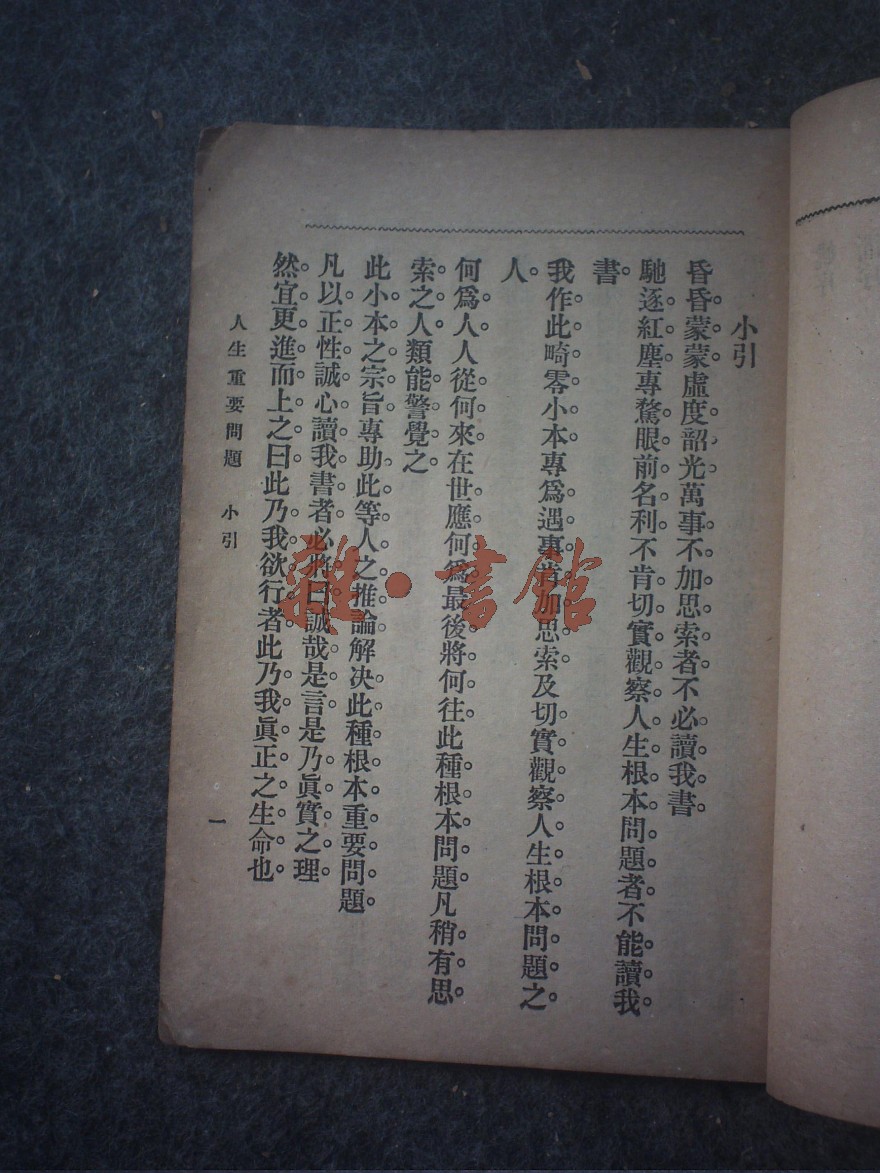 小引
昏昏蒙蒙虛度韶光萬事不加思索者不必讀我書
馳逐紅塵專騖眼前名利不肯切實觀察人生根本問題者不能讀我
書
我作此畸零小本專爲遇事肯加思索及切實觀察人生根本問題之
人
何爲人人從何來在世應何爲最後將何往此種根本問題凡稍有思
索之人類能警覺之
此小本之宗旨專助此等人之推論解决此種根本重要問題
凡以正性誠心讀我書者必將曰誠哉是言是乃眞實之理
然宜更進而上之曰此乃我欲行者此乃我眞正之生命也
人生重要問題 小引
一
雜·書館